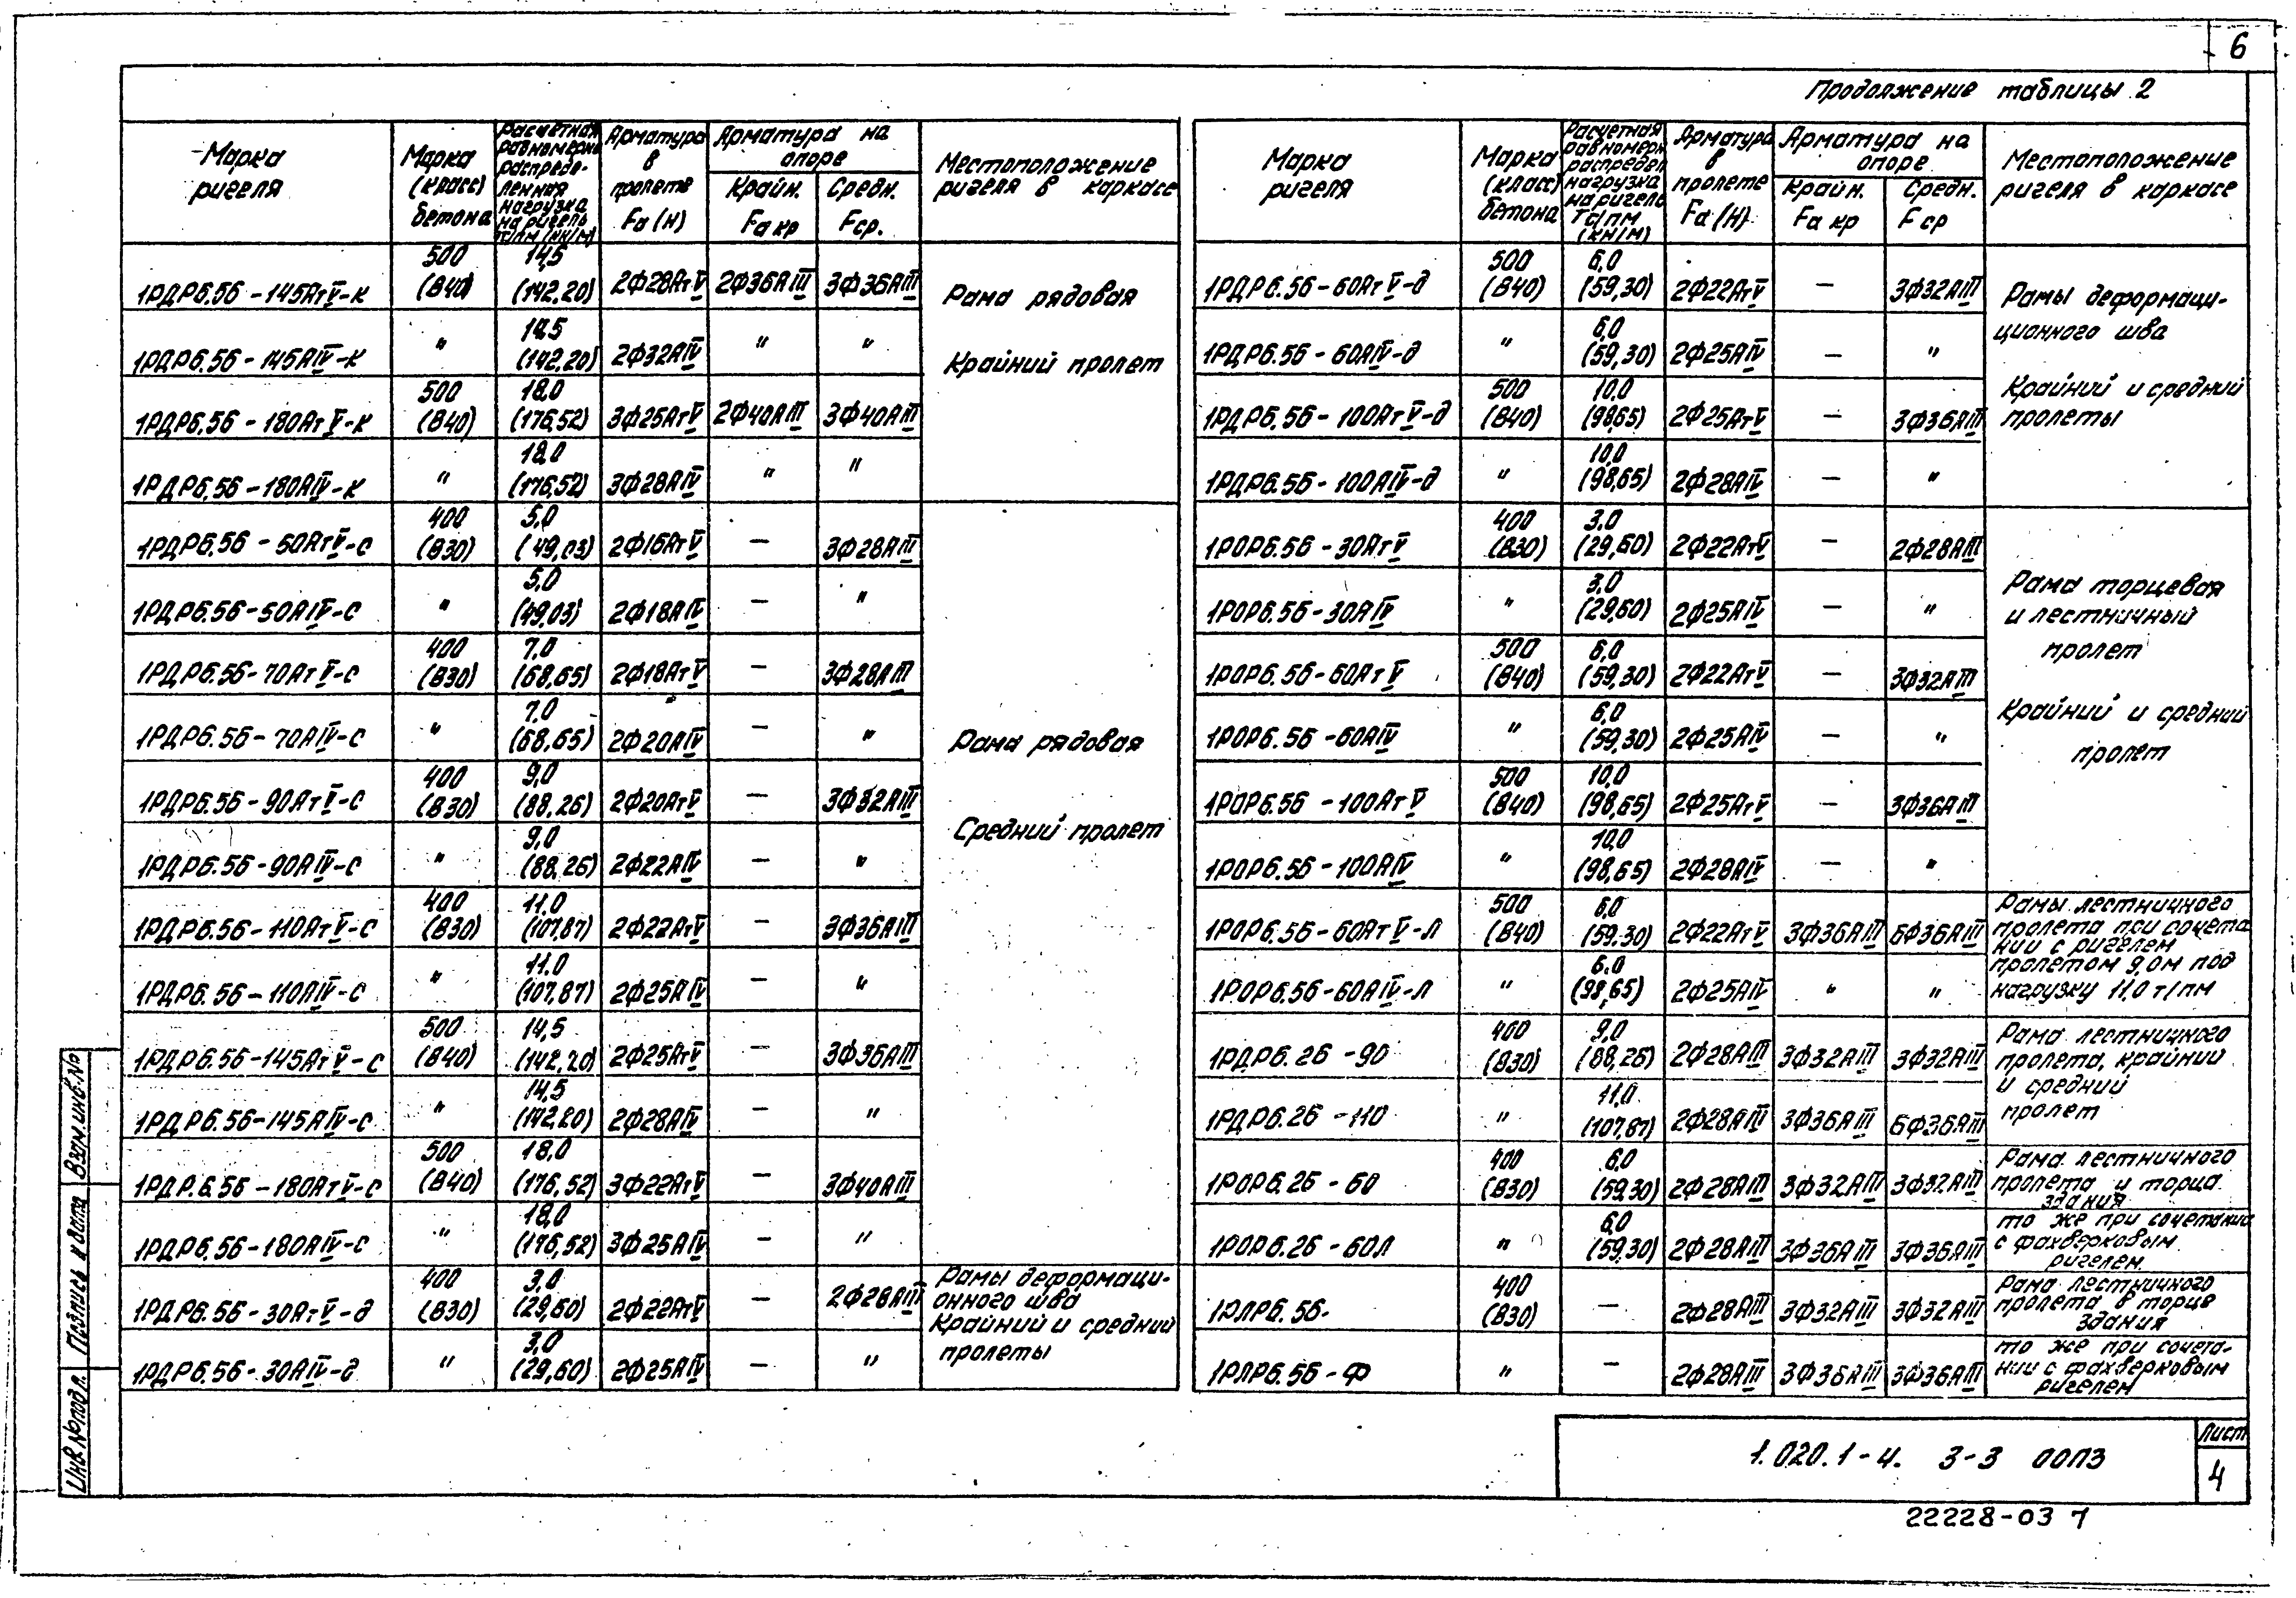 6
Продолжение таблицы 2
Марка ригеля | Марка (класс) бетона | Расчетная равномерно распреде-ленная нагрузка на ригель т/пм (кн/м) | Арматура в пролете Fа (н) | Арматура на опоре Крайн. Fа кр | Средн. Fср. | Местоположение ригеля в каркасе
1РДР6.56-145АтV-к | 500 (В40) | 14,5 (142,20) | 2Ф28АтV | 2Ф36АIII | 3Ф36АIII | Рама рядовая
1РДР6.56-145АIV-к | " | 14,5 (142,20) | 2Ф32АIV | " | " | Крайний пролет
1РДР6.56-180АтV-к | 500 (В40) | 18,0 (176,52) | 3Ф25АтV | 2Ф40АIII | 3Ф40АIII
1РДР6.56-180АIV-к | " | 18,0 (176,52) | 3Ф28АIV | " | "
1РДР6.56-50АтV-с | 400 (В30) | 5,0 (49,03) | 2Ф16АтV | — | 3Ф28АIII
1РДР6.56-50АIV-с | " | 5,0 (49,03) | 2Ф18АIV | — | "
1РДР6.56-70АтV-с | 400 (В30) | 7,0 (68,65) | 2Ф18АтV | — | 3Ф28АIII
1РДР6.56-70АIV-с | " | 7,0 (68,65) | 2Ф20АIV | — | " | Рама рядовая
1РДР6.56-90АтV-с | 400 (В30) | 9,0 (88,26) | 2Ф20АтV | — | 3Ф32АIII | Средний пролет
1РДР6.56-90АIV-с | " | 9,0 (88,26) | 2Ф22АIV | — | "
1РДР6.56-110АтV-с | 400 (В30) | 11,0 (107,87) | 2Ф22АтV | — | 3Ф36АIII
1РДР6.56-110АIV-с | " | 11,0 (107,87) | 2Ф25АIV | — | "
1РДР6.56-145АтV-с | 500 (В40) | 14,5 (142,20) | 2Ф25АтV | — | 3Ф36АIII
1РДР6.56-145АIV-с | " | 14,5 (142,20) | 2Ф28АIV | — | "
1РДР.6.56-180АтV-с | 500 (В40) | 18,0 (176,52) | 3Ф22АтV | — | 3Ф40АIII
1РДР6.56-180АIV-с | " | 18,0 (176,52) | 3Ф25АIV | — | "
1РДР6.56-30АтV-д | 400 (В30) | 3,0 (29,60) | 2Ф22АтV | — | 2Ф28АIII | Рамы деформаци-онного шва
1РДР6.56-30АIV-д | " | 3,0 (29,60) | 2Ф25АIV | — | " | Крайний и средний пролеты
Марка ригеля | Марка (класс) бетона | Расчетная равномерн распредел нагрузка на ригель тс/пм (кн/м) | Арматура в пролете Fа (н) | Арматура на опоре Крайн. Fа кр | Средн. F ср | Местоположение ригеля в каркасе
1РДР6.56-60АтV-д | 500 (В40) | 6,0 (59,30) | 2Ф22АтV | — | 3Ф32АIII | Рамы деформаци-
1РДР6.56-60АIV-д | " | 6,0 (59,30) | 2Ф25АIV | — | " | ционного шва
1РДР6.56-100АтV-д | 500 (В40) | 10,0 (98,65) | 2Ф25АтV | — | 3Ф36АIII | Крайний и средний пролеты
1РДР6.56-100АIV-д | " | 10,0 (98,65) | 2Ф28АIV | — | "
1РОР6.56-30АтV | 400 (В30) | 3,0 (29,60) | 2Ф22АтV | — | 2Ф28АIII
1РОР6.56-30АIV | " | 3,0 (29,60) | 2Ф25АIV | — | " | Рама торцевая и лестничный
1РОР6.56-60АтV | 500 (В40) | 6,0 (59,30) | 2Ф22АтV | — | 3Ф32АIII | пролет
1РОР6.56-60АIV | " | 6,0 (59,30) | 2Ф25АIV | — | " | Крайний и средний пролет
1РОР6.56-100АтV | 500 (В40) | 10,0 (98,65) | 2Ф25АтV | — | 3Ф36АIII
1РОР6.56-100АIV | " | 10,0 (98,65) | 2Ф28АIV | — | "
1РОР6.56-60АтV-Л | 500 (В40) | 6,0 (59,30) | 2Ф22АтV | 3Ф36АIII | 6Ф36АIII | Рамы лестничного пролета при сочета нии с ригелем
1РОР6.56-60АIV-Л | " | 6,0 (98,65) | 2Ф25АIV | " | " | пролетом 9,0м под нагрузку 11,0 т/пм
1РДР6.26-90 | 400 (В30) | 9,0 (88,26) | 2Ф28АIII | 3Ф32АIII | 3Ф32АIII | Рама лестничного пролета, крайний
1РДР6.26-110 | " | 11,0 (107,87) | 2Ф28АIII | 3Ф36АIII | 6Ф36АIII | и средний пролет
1РОР6.26-60 | 400 (В30) | 6,0 (59,30) | 2Ф28АIII | 3Ф32АIII | 3Ф32АIII | Рама лестничного пролета и торца здания
1РОР6.26-60Л | " | 6,0 (59,30) | 2Ф28АIII | 3Ф36АIII | 3Ф36АIII | то же при сочетании с фахверковым ригелем
1РЛР6.56- | 400 (В30) | — | 2Ф28АIII | 3Ф32АIII | 3Ф32АIII | Рама лестничного пролета в торце здания
1РЛР6.56-Ф | " | — | 2Ф28АIII | 3Ф36АIII | 3Ф36АIII | то же при сочета-нии с фахверковым ригелем
Инв.№подл. Подпись и дата Взам.инв.№
1.020.1-4. 3-3 00ПЗ
Лист
4
22228-03 7